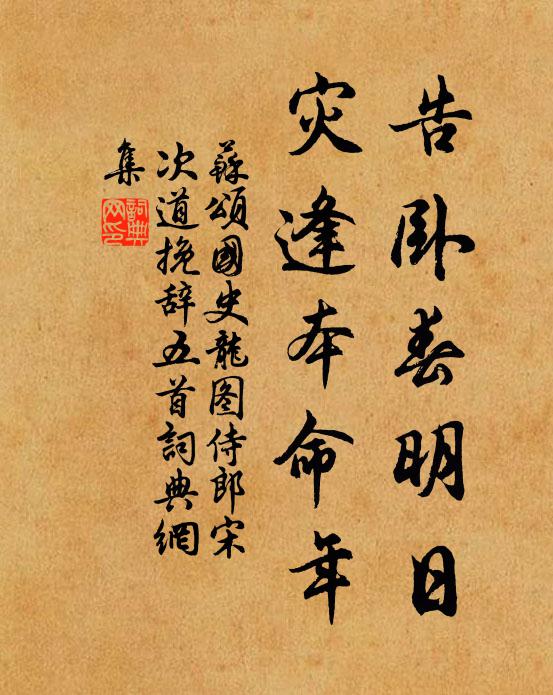 告卧春明日
灾逢本命年
蘇頌國史龍图侍郎宋
次道挽辞五首詞典網
集
詞典网印